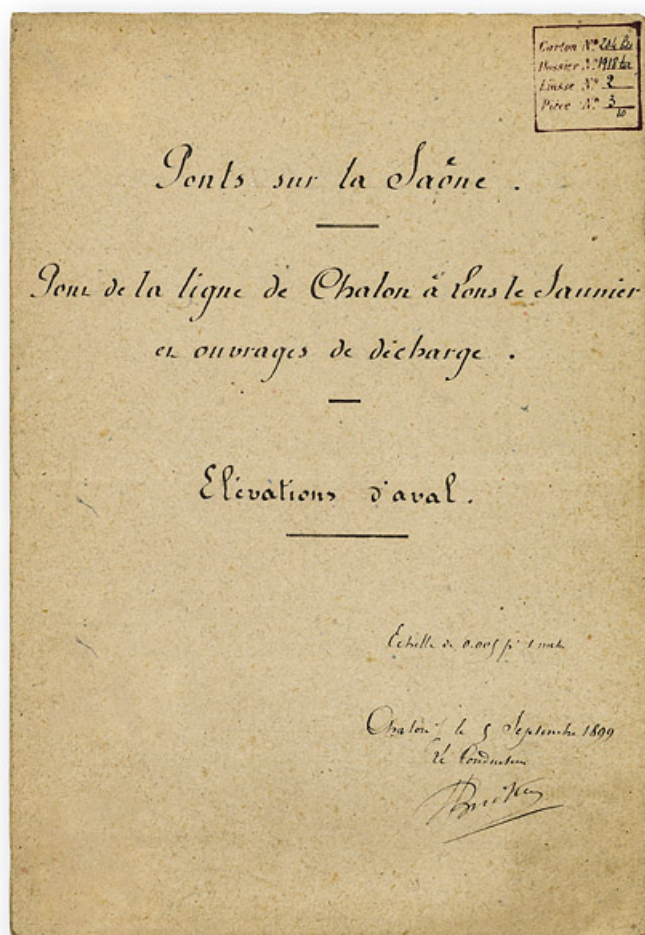 Carton N°
Dossier N° 1918 ter
Liasse N° 2
Pièce N° 3/10
Ponts sur la Saône.
Pont de la ligne de Chalon à Lons le Saunier
et ouvrages de décharge.
Elévations d'aval.
Echelle de 0.005 pr 1 mètre
Chalon, le 5 Septembre 1899
Le Conducteur